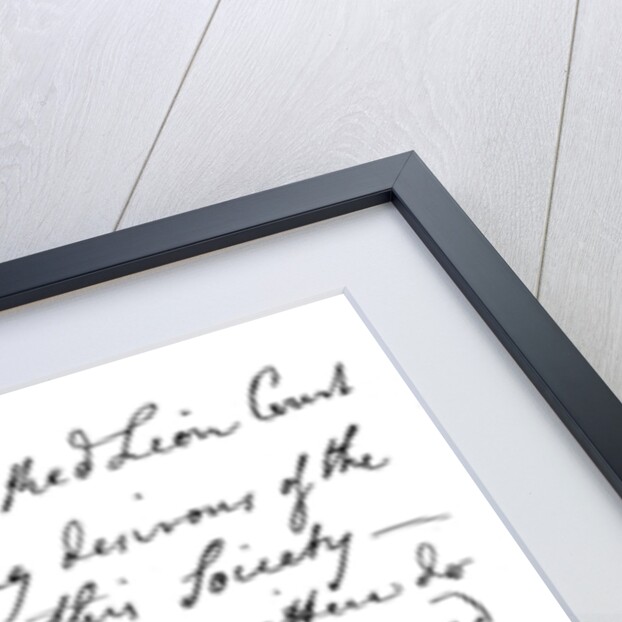 Red Lion Court
desirous of the
this Society —
do